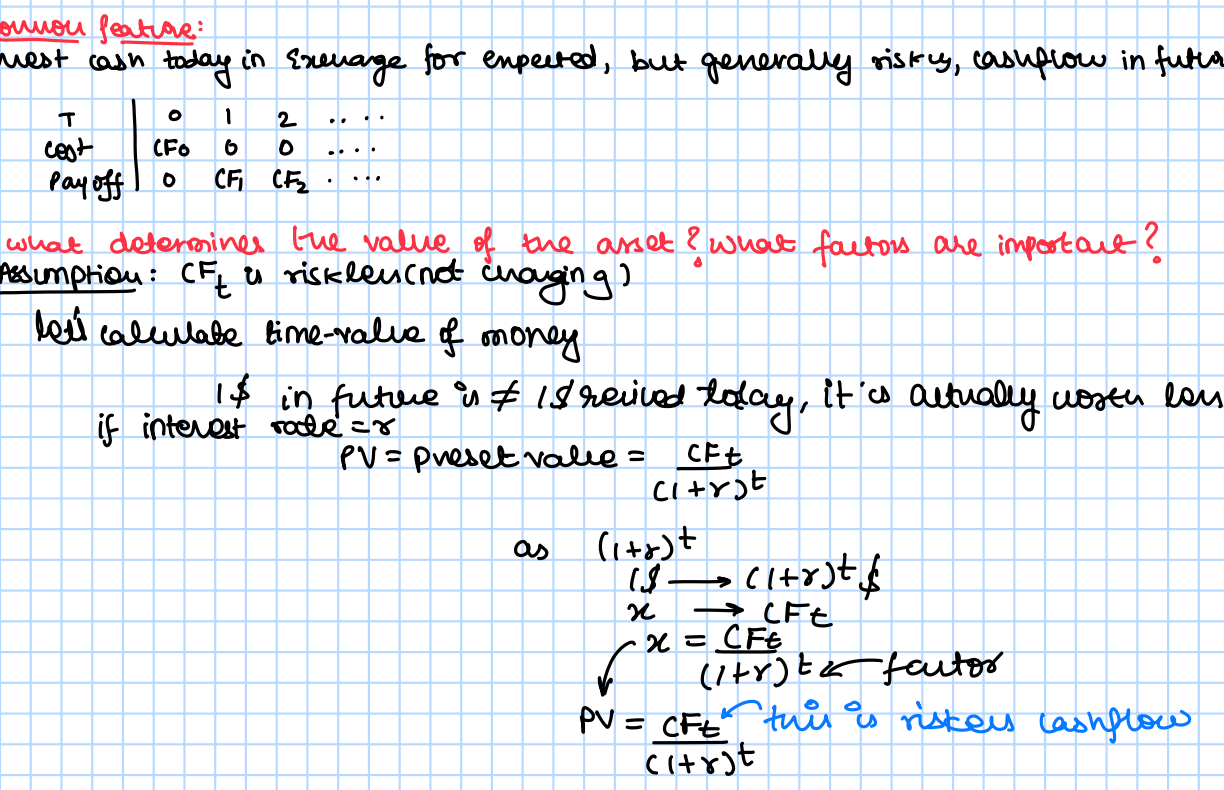 ommon feature:
nvest cash today in Exchange for expected, but generally risky, cashflow in futur
T 0 1 2 ....
cost CF0 0 0 ....
Pay off 0 CF1 CF2 ....
what determines the value of the asset? what factors are important?
Assumption: CFt is riskless (not changing)
let's calculate time-value of money
1$ in future is ≠ 1$ recived today, it is actually worth less
if interest rate = r
PV = preset value = CFt
(1+r)^t
as (1+r)^t
1$ → (1+r)^t $
x → CFt
x = CFt
(1+r)^t ← factor
PV = CFt ← this is riskless cashflow
(1+r)^t